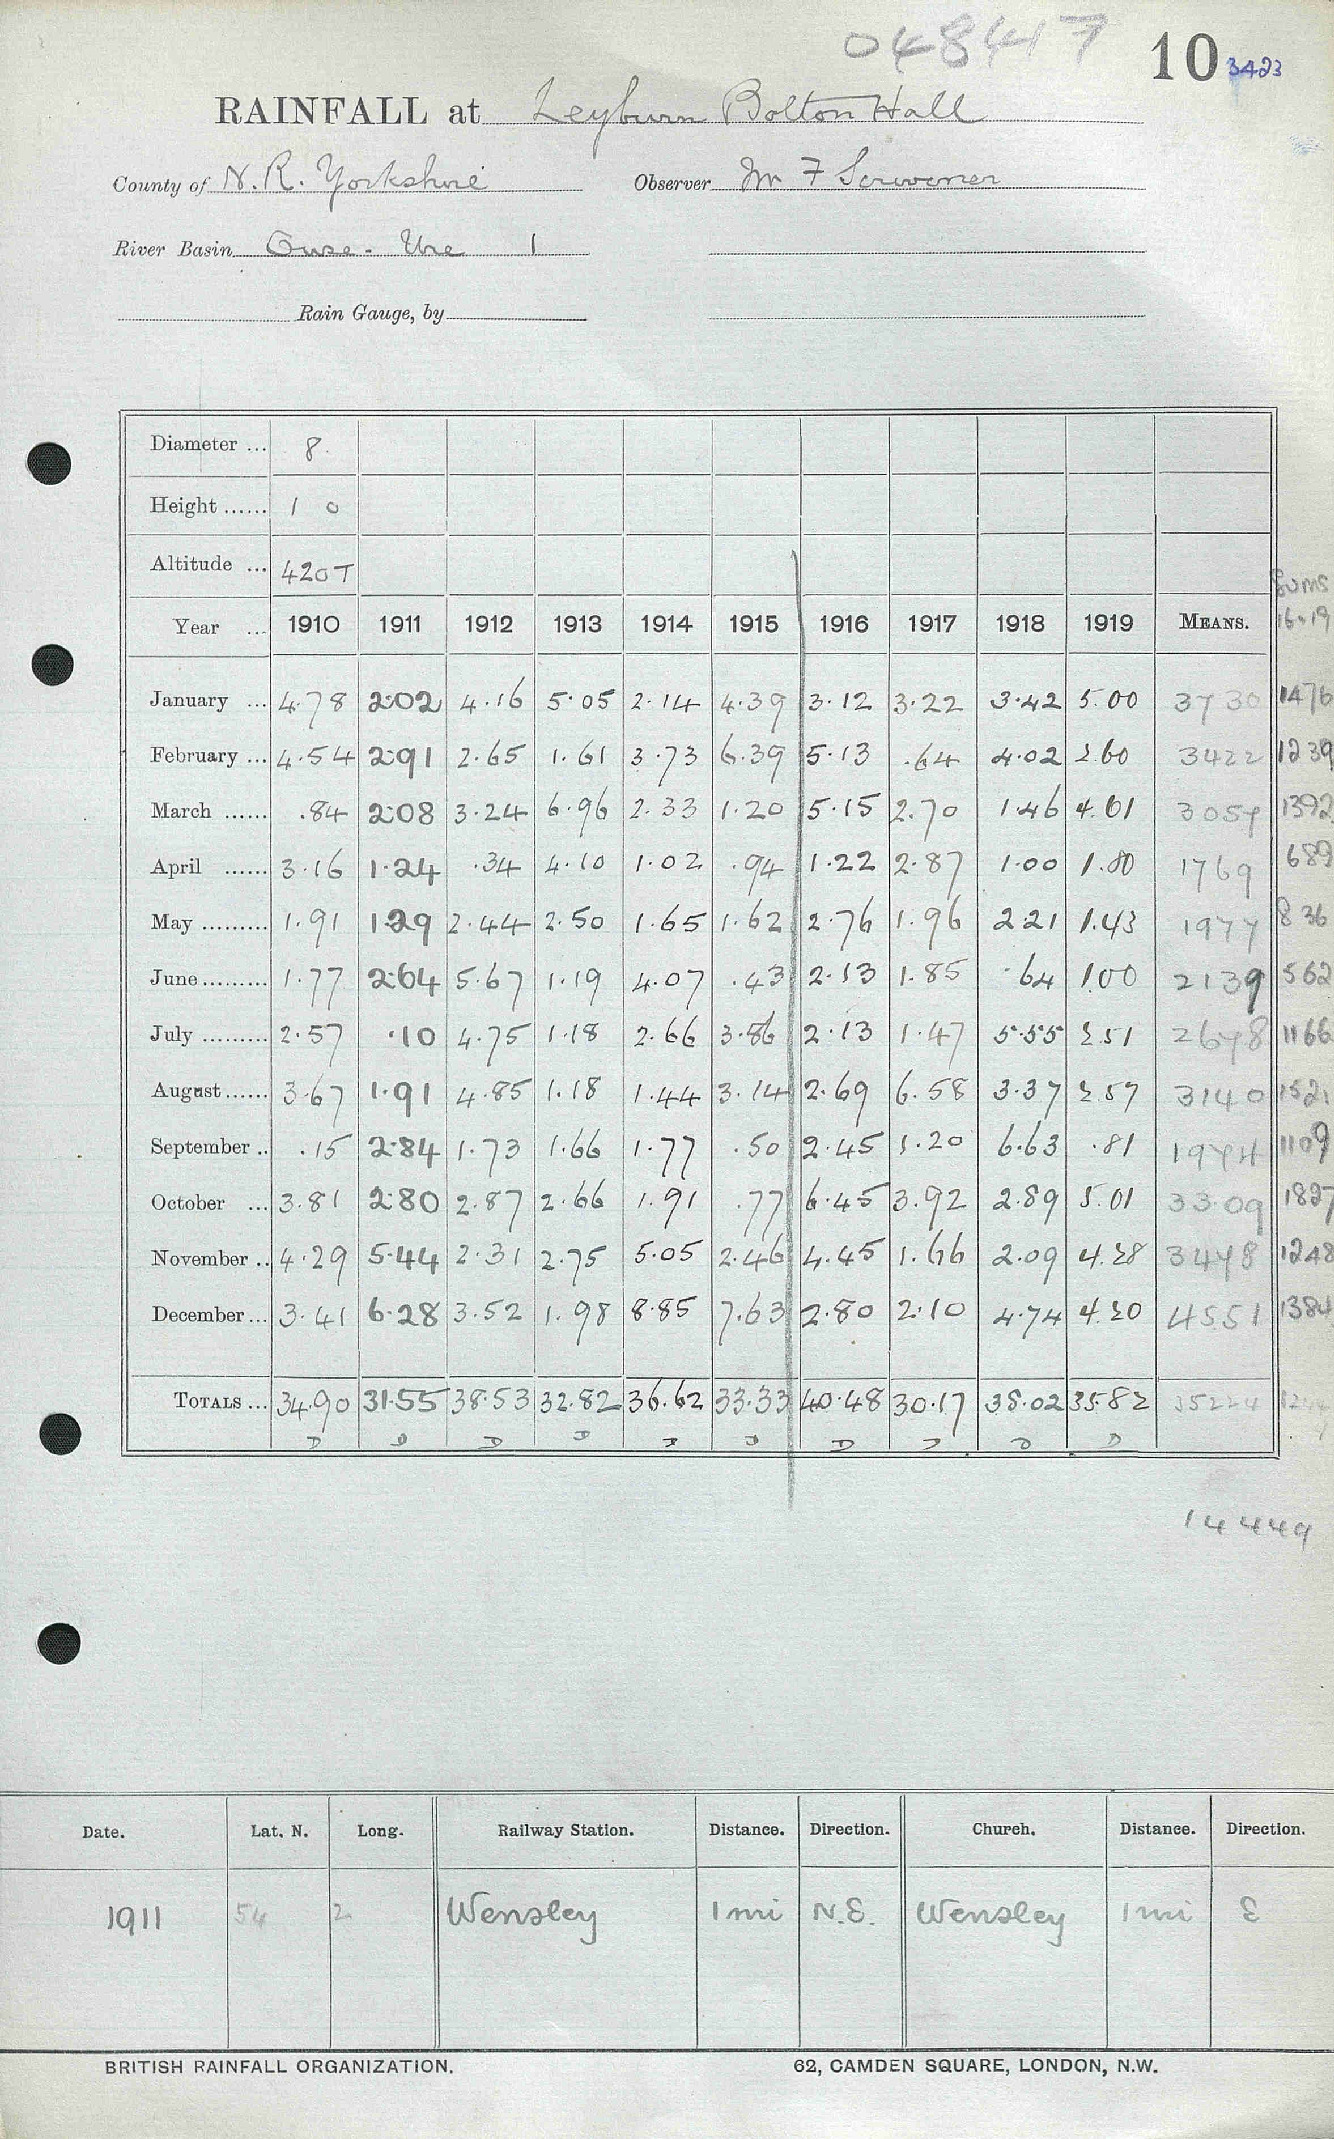 048417
10 3423
RAINFALL at Leyburn Bolton Hall
County of N.R. Yorkshire Observer Mr F Scrivener
River Basin Ouse - Ure 1
Rain Gauge, by
Diameter ... 8.
Height ...... 1 0
Altitude ... 420T
Sums
Year ... 1910 1911 1912 1913 1914 1915 1916 1917 1918 1919 MEANS. 16-19
January ... 4.78 2.02 4.16 5.05 2.14 4.39 3.12 3.22 3.42 5.00 3730 1476
February ... 4.54 2.91 2.65 1.61 3.73 6.39 5.13 .64 4.02 2.60 3422 1239
March ...... .84 2.08 3.24 6.96 2.33 1.20 5.15 2.70 1.46 4.61 3057 1392
April ...... 3.16 1.24 .34 4.10 1.02 .94 1.22 2.87 1.00 1.80 1769 689
May ......... 1.91 1.29 2.44 2.50 1.65 1.62 2.76 1.96 2.21 1.43 1977 836
June ......... 1.77 2.64 5.67 1.19 4.07 .43 2.13 1.85 .64 1.00 2139 562
July ......... 2.57 .10 4.75 1.18 2.66 3.86 2.13 1.47 5.55 2.51 2678 1166
August ...... 3.67 1.91 4.85 1.18 1.44 3.14 2.69 6.58 3.37 2.57 3140 1521
September .. .15 2.84 1.73 1.66 1.77 .50 2.45 1.20 6.63 .81 1974 1109
October ... 3.81 2.80 2.87 2.66 1.91 .77 6.45 3.92 2.89 5.01 3309 1827
November .. 4.29 5.44 2.31 2.75 5.05 2.46 4.45 1.66 2.09 4.28 3478 1248
December ... 3.41 6.28 3.52 1.98 8.85 7.63 2.80 2.10 4.74 4.20 4551 1384
TOTALS ... 34.90 31.55 38.53 32.82 36.62 33.33 40.48 30.17 38.02 35.82 35224
D D D D D D D D D D
14449
Date. Lat. N. Long. Railway Station. Distance. Direction. Church. Distance. Direction.
1911 54 2 Wensley 1 mi N.E. Wensley 1 mi E
BRITISH RAINFALL ORGANIZATION. 62, CAMDEN SQUARE, LONDON, N.W.